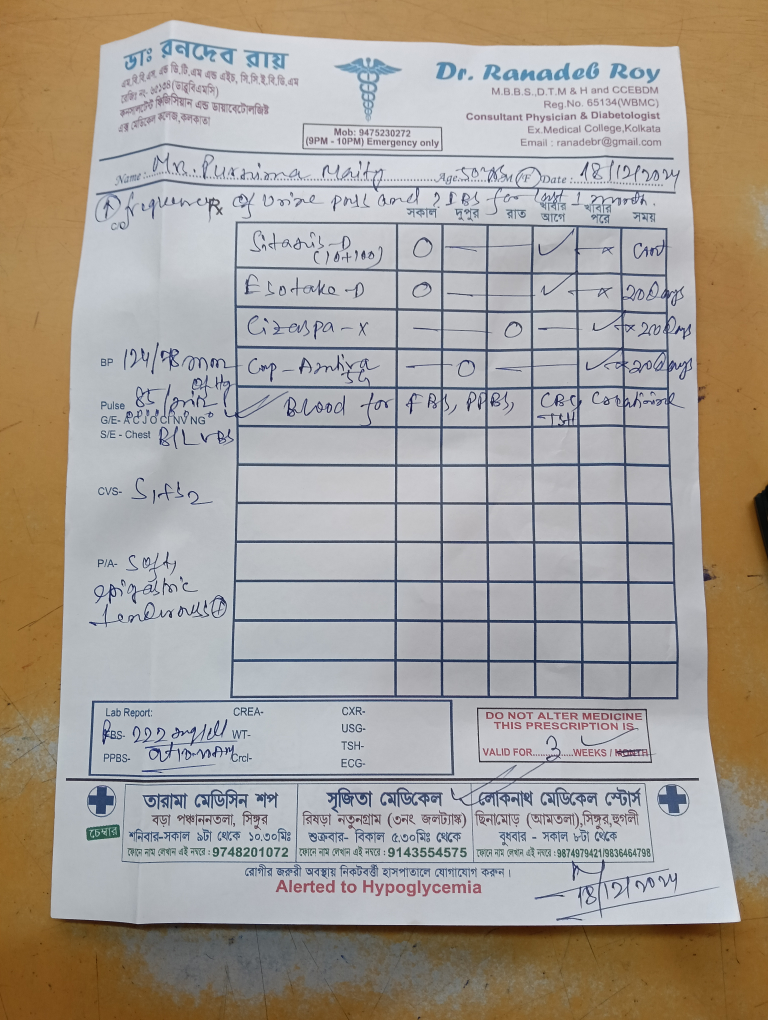 ডাঃ রনদেব রায়
এম.বি.বি.এস. এন্ড ডি.টি.এম এন্ড এইচ, সি.সি.ই.বি.ডি.এম
রেজিঃ নং- ৬৫১৩৪(ডাব্লুবিএমসি)
কনসালটেন্ট ফিজিসিয়ান এন্ড ডায়াবেটোলজিষ্ট
এক্স মেডিকেল কলেজ,কলকাতা
Mob: 9475230272
(9PM - 10PM) Emergency only
Dr. Ranadeb Roy
M.B.B.S.,D.T.M & H and CCEBDM
Reg.No. 65134(WBMC)
Consultant Physician & Diabetologist
Ex.Medical College,Kolkata
Email : ranadebr@gmail.com
Name: Purnima Maity Age 50 yrs M/F Date : 18/12/2024
↑ frequency of Urine pass and ↑ FBS for last 1 month.
c/o Rx
সকাল দুপুর রাত খাবার আগে খাবার পরে সময়
Sitaris-D (10+100) O — — ✓ — × Cont
Esotake-D O — — ✓ — × 20 Days
Cizaspa-X — — O — ✓ × 20 Days
Cap - — O — — ✓ × 20 Days
Blood for FBS, PPBS, CBC, Creatinine
TSH
BP 124/78 mm of Hg
Pulse 85/min
G/E- A C J O C N V N G
S/E - Chest B/L VBS
CVS- S1+S2
P/A- Soft,
epigastric
tenderness +
Lab Report: CREA- CXR-
FBS- 222 mg/dl WT- USG-
PPBS- Crcl- TSH-
ECG-
DO NOT ALTER MEDICINE
THIS PRESCRIPTION IS
VALID FOR 3 WEEKS / MONTH
চেম্বার
তারামা মেডিসিন শপ
বড়া পঞ্চাননতলা, সিঙ্গুর
শনিবার-সকাল ৯টা থেকে ১০.৩০মিঃ
ফোনে নাম লেখান এই নম্বরে : 9748201072
সৃজিতা মেডিকেল
রিষড়া নতুনগ্রাম (৩নং জলট্যাঙ্ক)
শুক্রবার- বিকাল ৫.৩০মিঃ থেকে
ফোনে নাম লেখান এই নম্বরে : 9143554575
লোকনাথ মেডিকেল স্টোর্স
ছিনামোড় (আমতলা),সিঙ্গুর,হুগলী
বুধবার - সকাল ৮টা থেকে
ফোনে নাম লেখান এই নম্বরে : 9874979421/9836464798
রোগীর জরুরী অবস্থায় নিকটবর্তী হাসপাতালে যোগাযোগ করুন।
Alerted to Hypoglycemia
18/12/2024